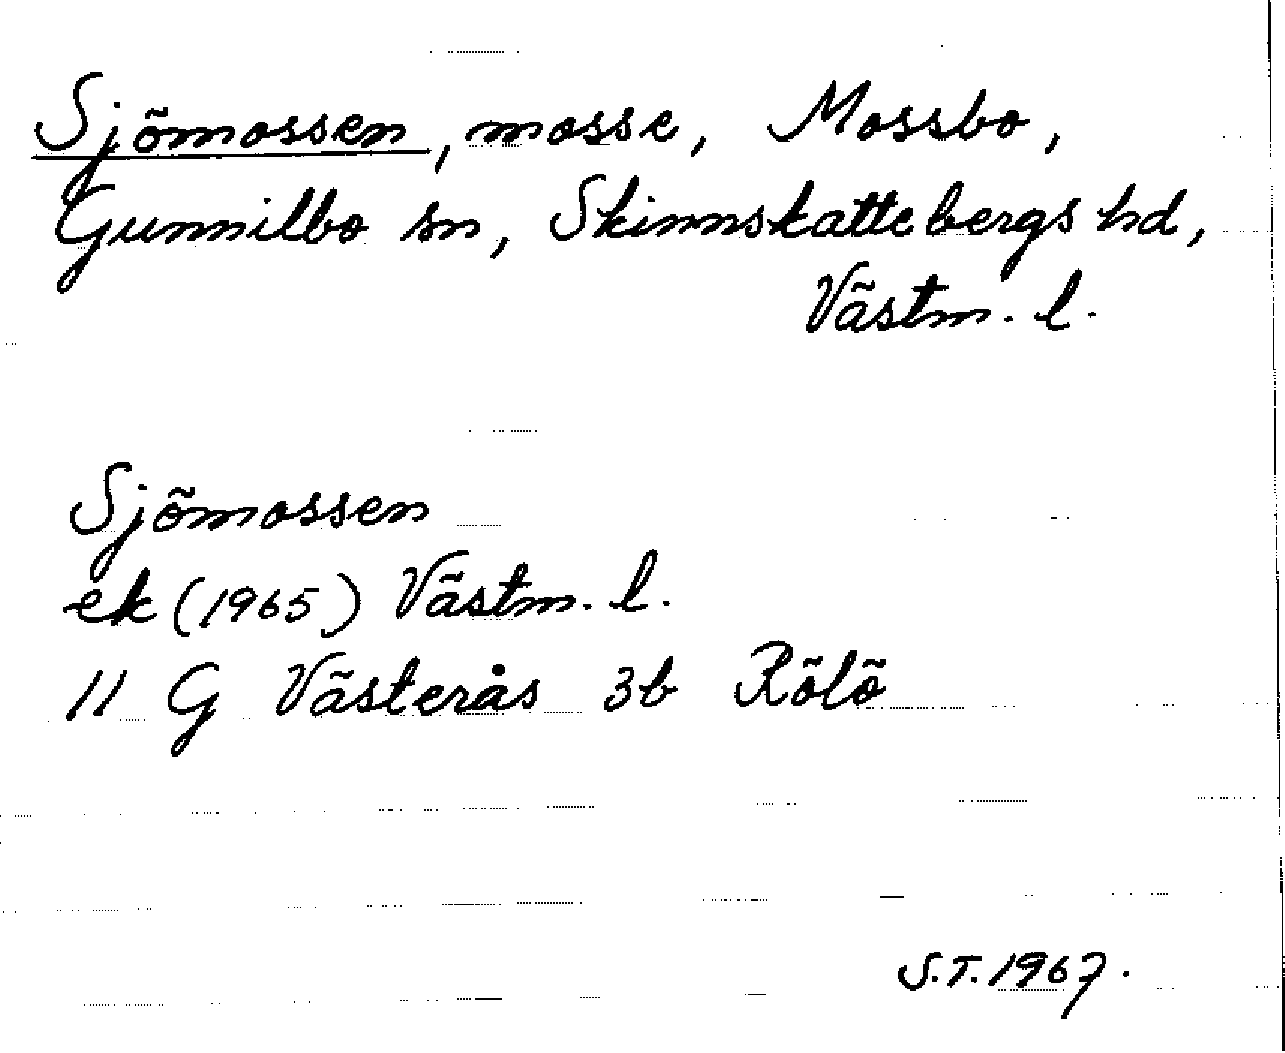 Sjömossen, mosse, Mossbo,
Gunnilbo sn, Skinnskattebergs hd,
Västm. l.
Sjömossen
ek (1965) Västm. l.
11 G Västerås 3b Rölö
S.T. 1967.